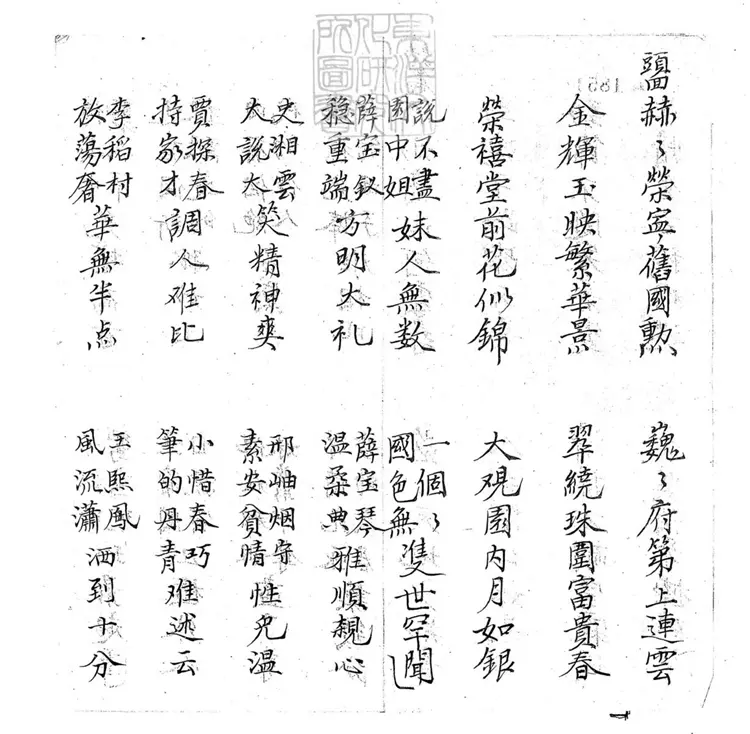 赫〻榮寧舊國勳　巍〻府第上連雲
金輝玉映繁華景　翠繞珠圍富貴春
榮禧堂前花似錦　大观園内月如銀
說不盡園中姐妹人無数　一個〻國色無雙世罕聞
薛宝釵穏重端方明大礼　薛宝琴温柔典雅順親心
史湘雲大說大笑精神爽　邢岫烟守素安貧情性兒温
賈探春持家才調人难比　小惜春巧筆的丹青难述云
李稻村放蕩奢華無半点　王熙鳳風流瀟洒到十分